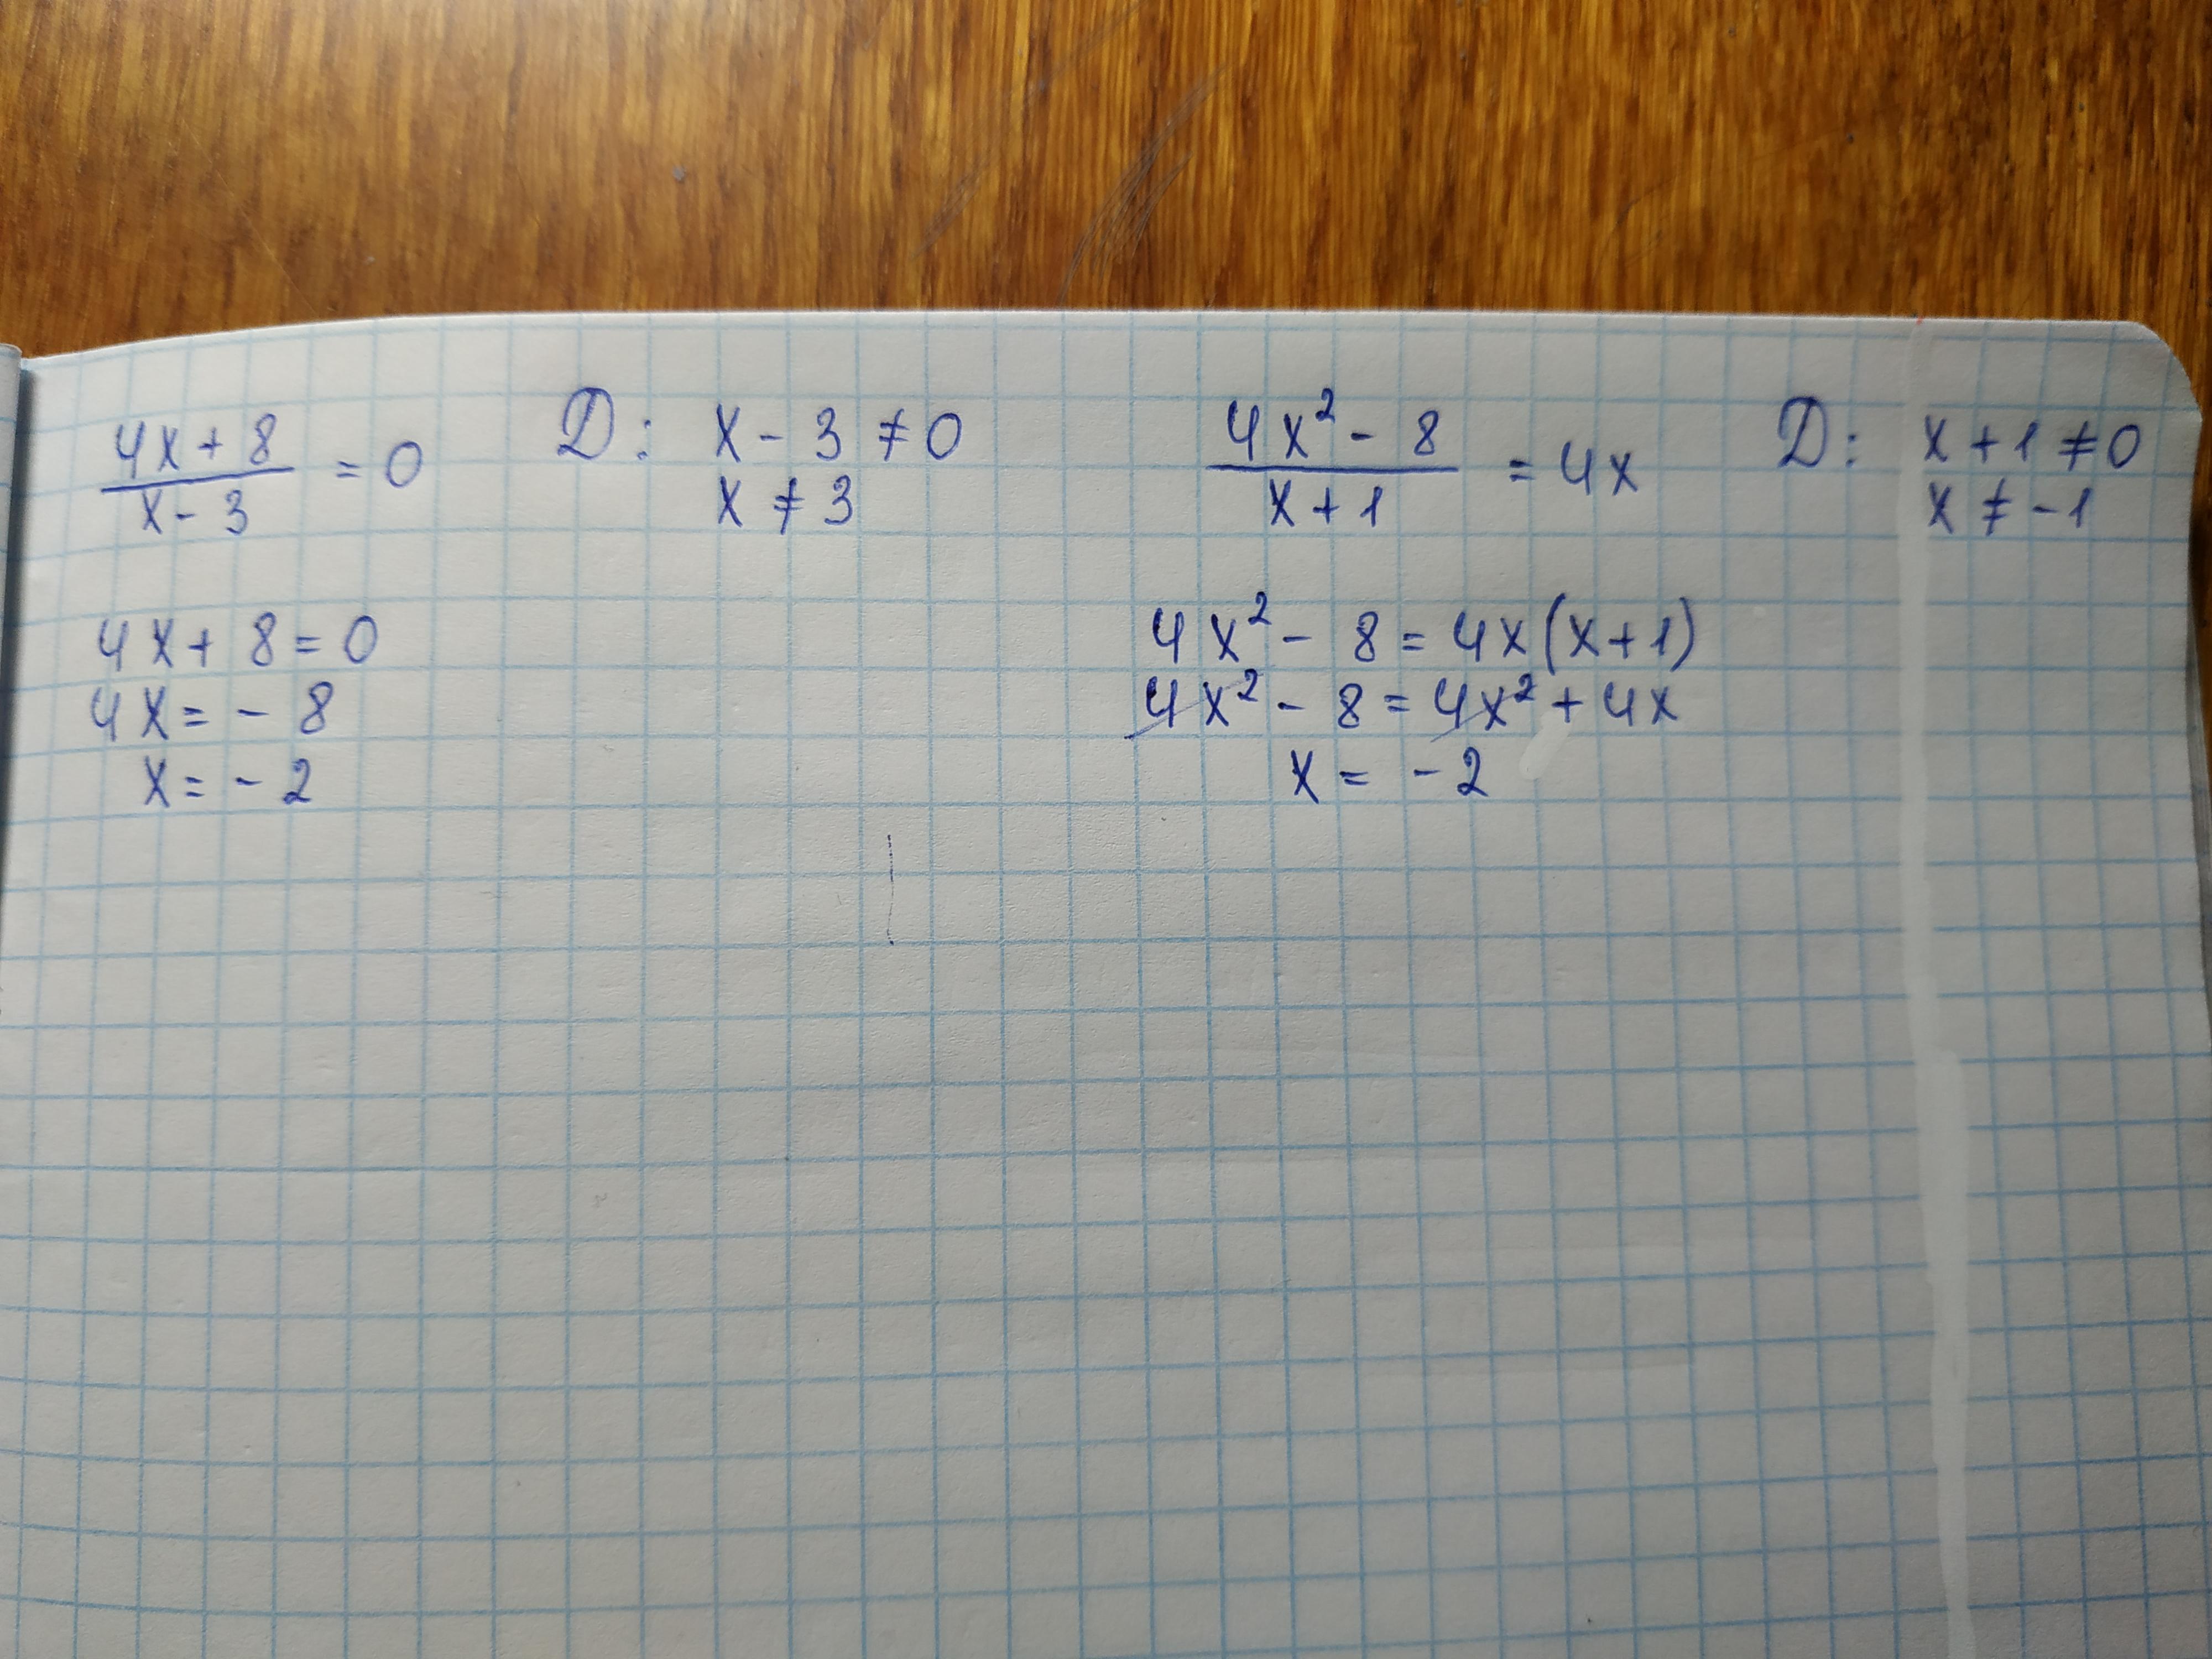 (4x + 8)/(x - 3) = 0
D: x - 3 ≠ 0
x ≠ 3
4x + 8 = 0
4x = - 8
x = - 2
(4x² - 8)/(x + 1) = 4x
D: x + 1 ≠ 0
x ≠ -1
4x² - 8 = 4x(x + 1)
4x² - 8 = 4x² + 4x
x = - 2